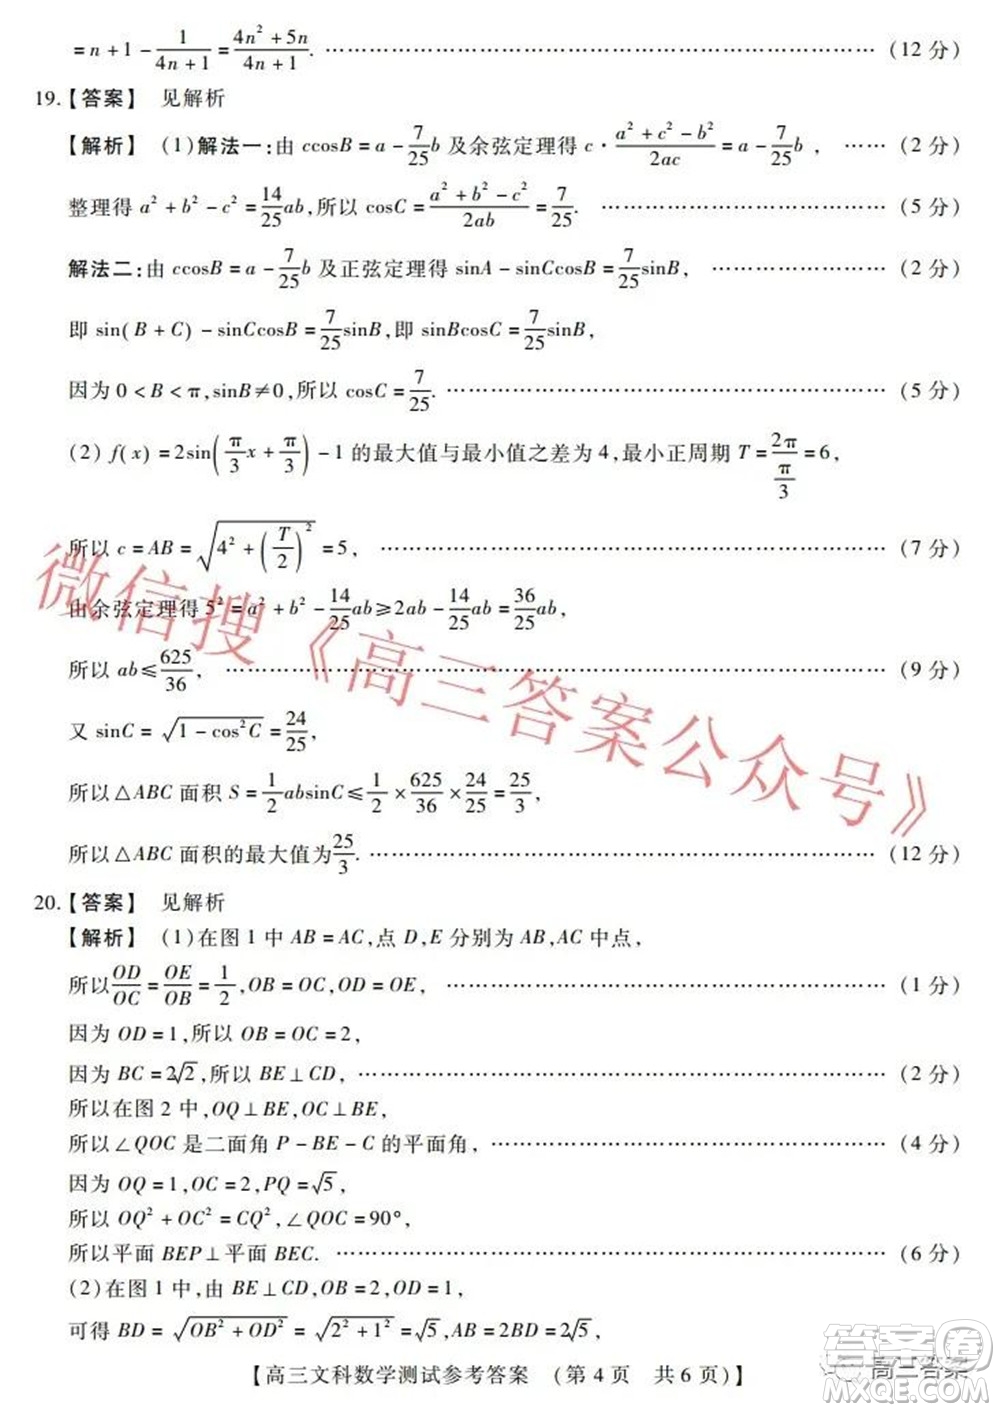 = n + 1 - \frac{1}{4n+1} = \frac{4n^2+5n}{4n+1}. …… (12 分)
19.【答案】 见解析
【解析】 (1)解法一:由 ccosB = a - \frac{7}{25}b 及余弦定理得 c · \frac{a^2+c^2-b^2}{2ac} = a - \frac{7}{25}b , …… (2 分)
整理得 a^2 + b^2 - c^2 = \frac{14}{25}ab,所以 cosC = \frac{a^2+b^2-c^2}{2ab} = \frac{7}{25}. …… (5 分)
解法二:由 ccosB = a - \frac{7}{25}b 及正弦定理得 sinA - sinCcosB = \frac{7}{25}sinB, …… (2 分)
即 sin(B + C) - sinCcosB = \frac{7}{25}sinB,即 sinBcosC = \frac{7}{25}sinB,
因为 0 < B < π,sinB ≠ 0,所以 cosC = \frac{7}{25}. …… (5 分)
(2) f(x) = 2sin(\frac{π}{3}x + \frac{π}{3}) - 1 的最大值与最小值之差为 4,最小正周期 T = \frac{2π}{\frac{π}{3}} = 6,
所以 c = AB = \sqrt{4^2 + (\frac{T}{2})^2} = 5, …… (7 分)
由余弦定理得 5^2 = a^2 + b^2 - \frac{14}{25}ab ≥ 2ab - \frac{14}{25}ab = \frac{36}{25}ab,
所以 ab ≤ \frac{625}{36}, …… (9 分)
又 sinC = \sqrt{1 - cos^2C} = \frac{24}{25},
所以 △ABC 面积 S = \frac{1}{2}absinC ≤ \frac{1}{2} × \frac{625}{36} × \frac{24}{25} = \frac{25}{3},
所以 △ABC 面积的最大值为 \frac{25}{3}. …… (12 分)
微信搜《高三答案公众号》
20.【答案】 见解析
【解析】 (1)在图 1 中 AB = AC,点 D,E 分别为 AB,AC 中点,
所以 \frac{OD}{OC} = \frac{OE}{OB} = \frac{1}{2},OB = OC,OD = OE, …… (1 分)
因为 OD = 1,所以 OB = OC = 2,
因为 BC = 2\sqrt{2},所以 BE ⊥ CD, …… (2 分)
所以在图 2 中,OQ ⊥ BE,OC ⊥ BE,
所以 ∠QOC 是二面角 P - BE - C 的平面角, …… (4 分)
因为 OQ = 1,OC = 2,PQ = \sqrt{5},
所以 OQ^2 + OC^2 = CQ^2,∠QOC = 90°,
所以平面 BEP ⊥ 平面 BEC. …… (6 分)
(2)在图 1 中,由 BE ⊥ CD,OB = 2,OD = 1,
可得 BD = \sqrt{OB^2 + OD^2} = \sqrt{2^2 + 1^2} = \sqrt{5},AB = 2BD = 2\sqrt{5},
【高三文科数学测试参考答案 (第 4 页 共 6 页)】
高三答案
作业帮
MXQE.COM